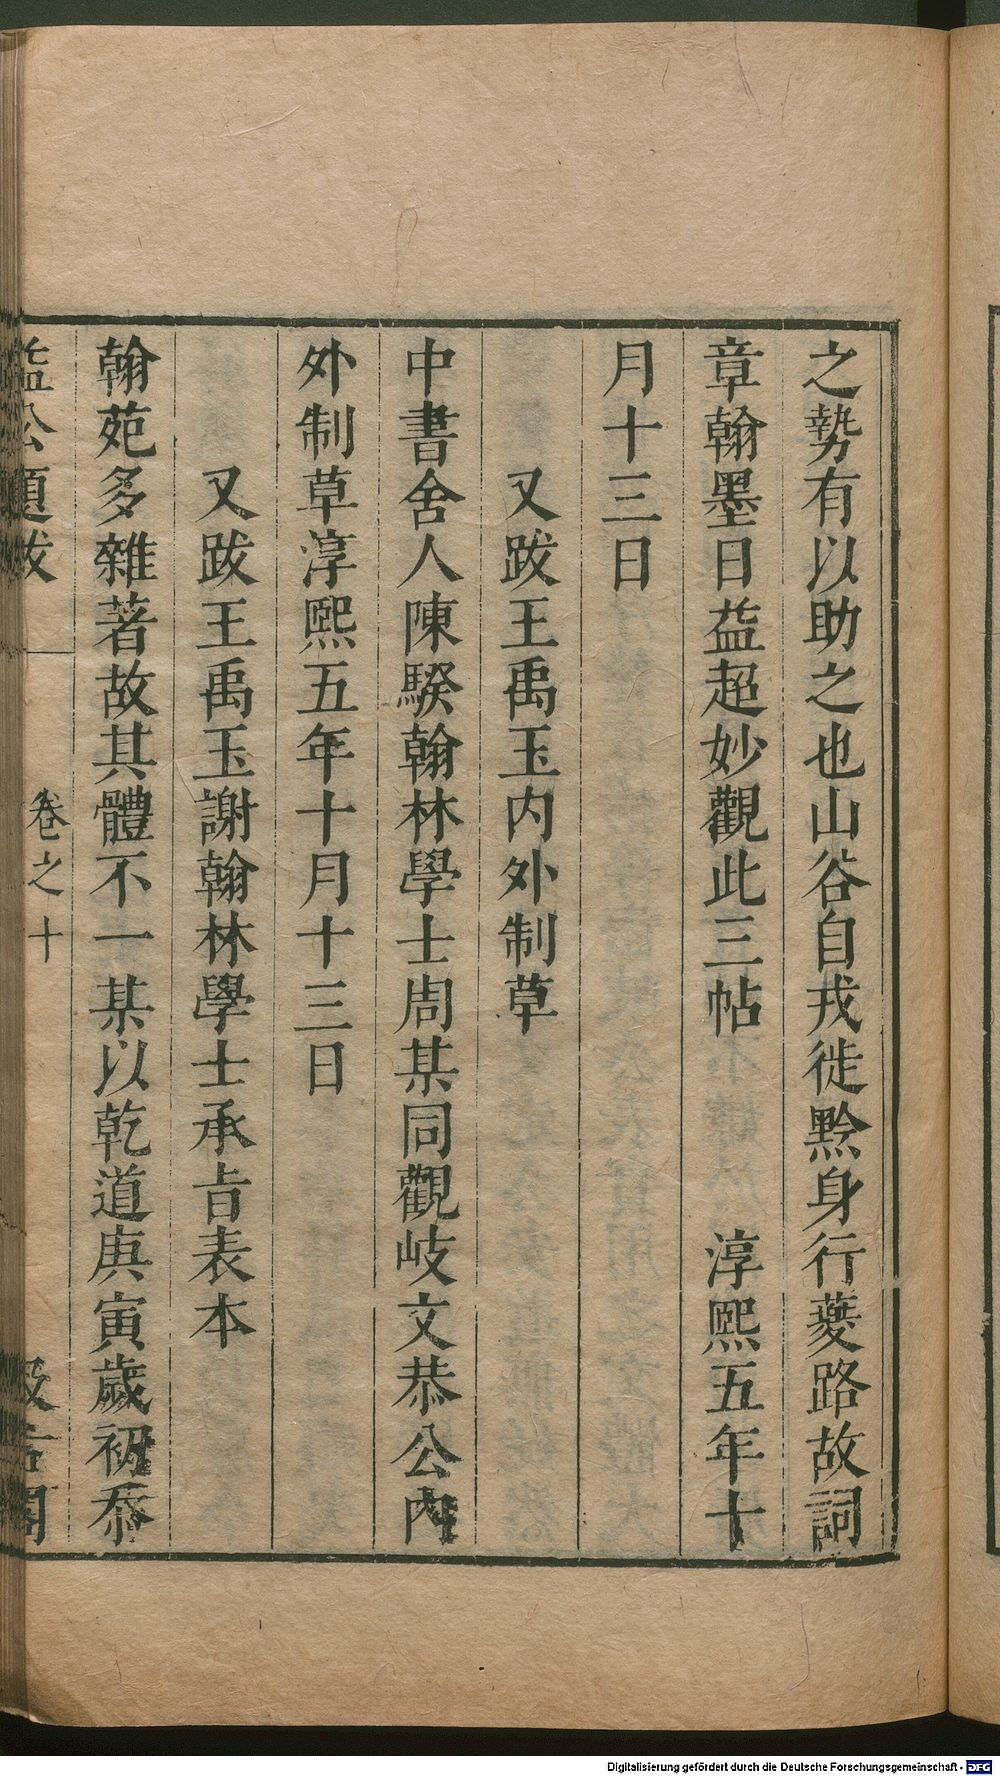 之勢有以助之也山谷自戎徙黔身行䕫路故詞
章翰墨日益超妙觀此三帖　　　淳熙五年十
月十三日
又跋王禹玉内外制草
中書舍人陳騤翰林學士周某同觀岐文恭公內
外制草淳熙五年十月十三日
又跋王禹玉謝翰林學士承旨表本
翰苑多雜著故其體不一某以乾道庚寅歲初忝
益公題跋　卷之十　汲古閣
Digitalisierung gefördert durch die Deutsche Forschungsgemeinschaft - DFG